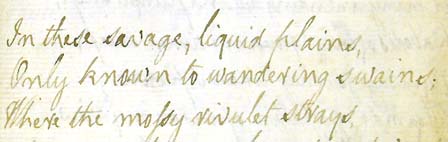 In these savage, liquid plains,
Only known to wandering swains;
Where the moſsy rivulet strays,